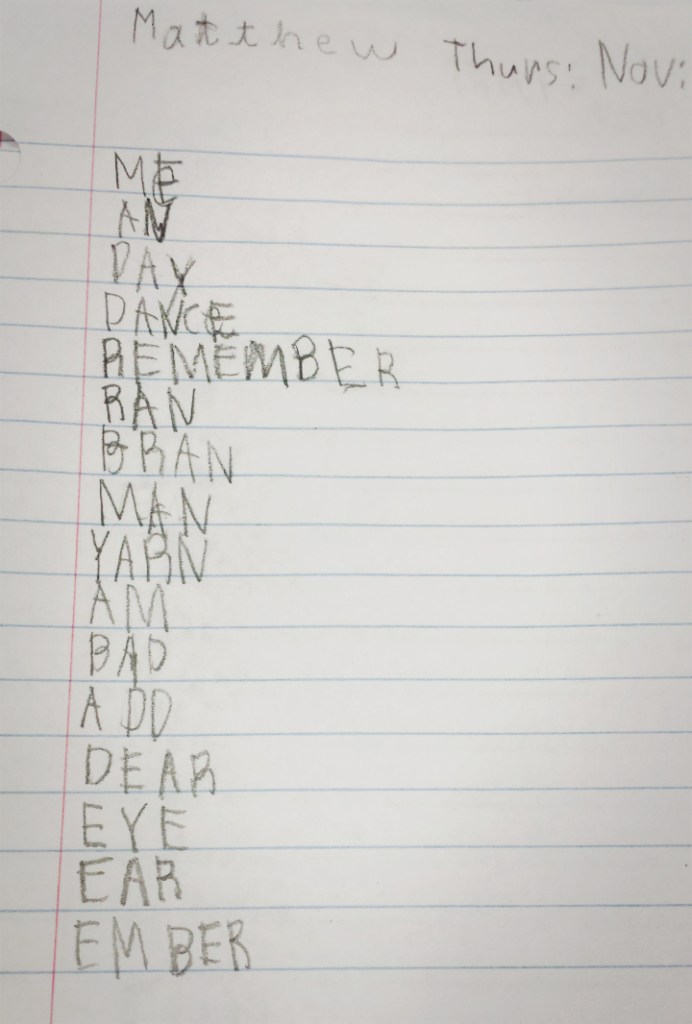 Matthew Thurs: Nov:
ME
AN
DAY
DANCE
REMEMBER
RAN
BRAN
MAN
YARN
AM
BAD
ADD
DEAR
EYE
EAR
EMBER